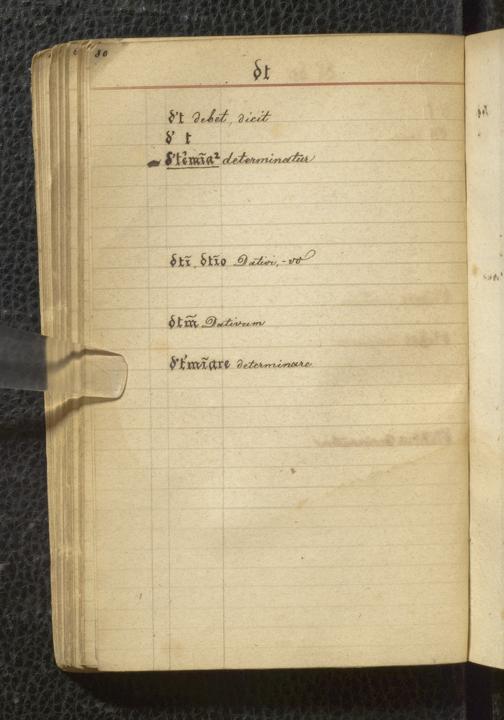 80
dt
d't debet, dicit
d' t
d't'mīa² determinatur
dtī, dtīo Dativi, -vo
dtm̄ Dativum
d't'mīare determinare